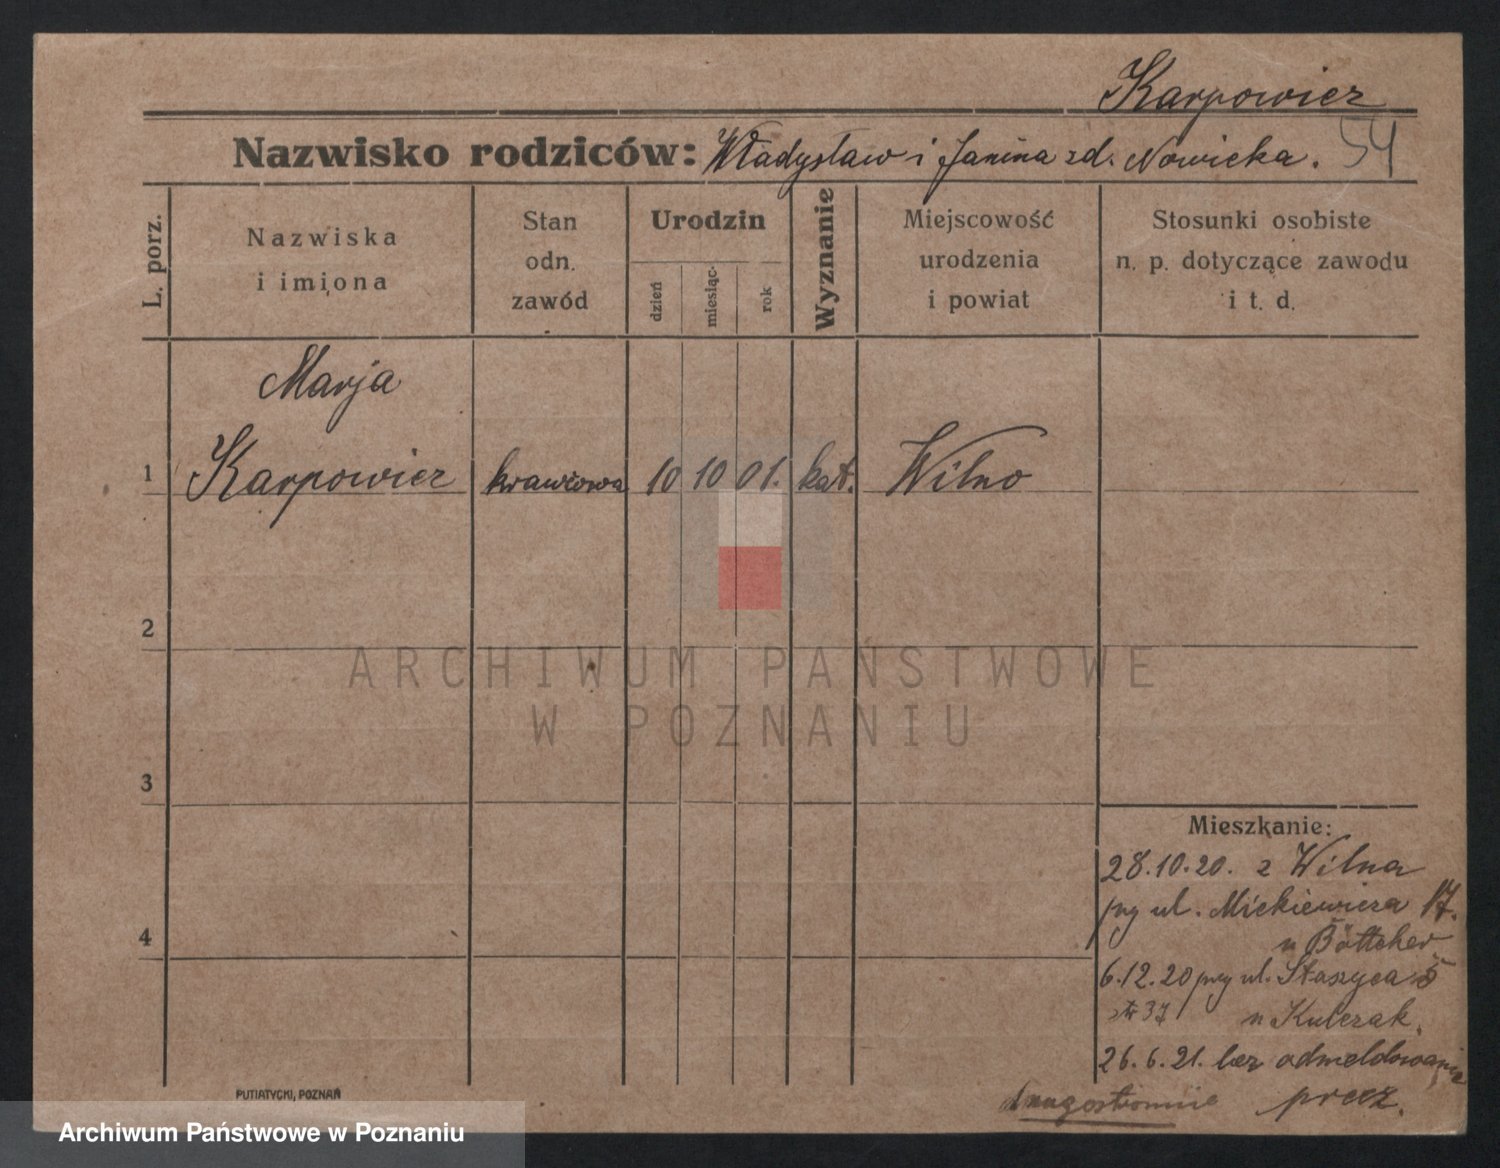 Karpowicz
Nazwisko rodziców: Władysław i Janina zd. Nowicka. 54
L. porz.
Nazwiska
i imiona
Stan
odn.
zawód
Urodzin
dzień
miesiąc
rok
Wyznanie
Miejscowość
urodzenia
i powiat
Stosunki osobiste
n. p. dotyczące zawodu
i t. d.
Marja
1 Karpowicz krawcowa 10 10 01. kat. Wilno
2
3
4
Mieszkanie:
28.10.20. z Wilna
przy ul. Mickiewicza 17.
u Böttcher
6.12.20 przy ul. Staszyca 5
str 37 u Kulczak.
26.6.21. bez odmeldowania
precz.
drugostronnie
PUTIATYCKI, POZNAŃ
ARCHIWUM PAŃSTWOWE
W POZNANIU
Archiwum Państwowe w Poznaniu